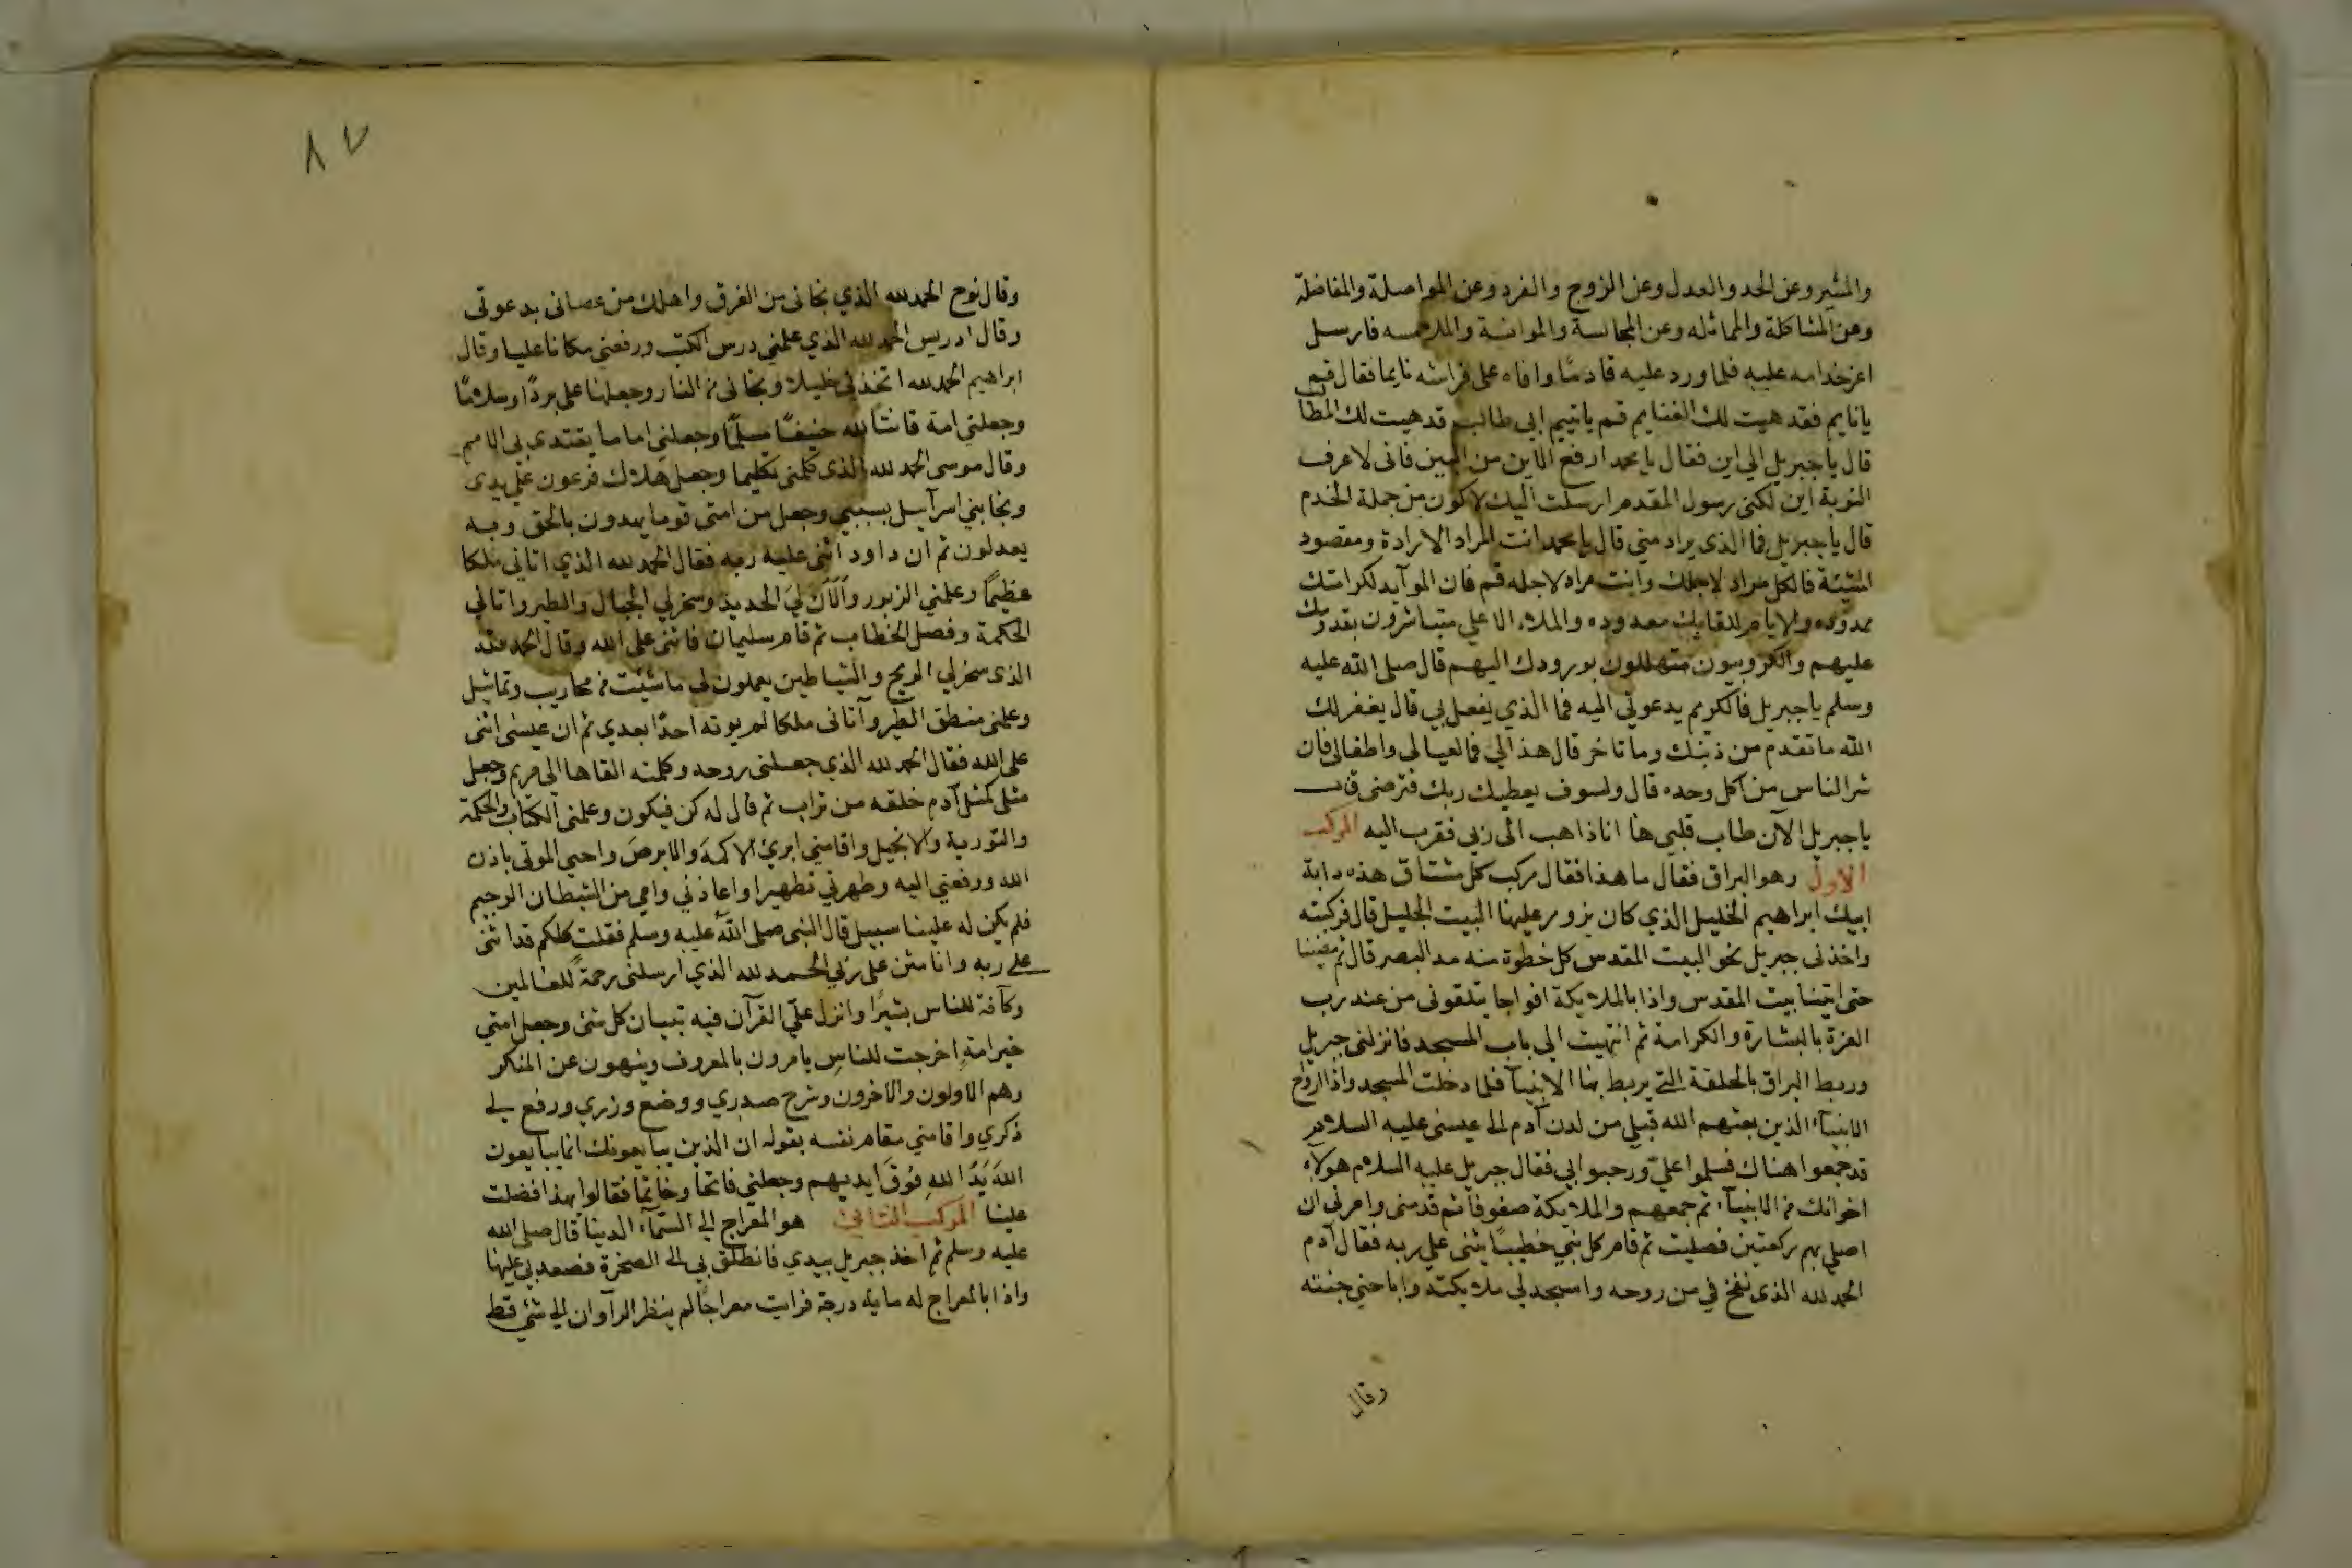 والمشير وعن الحد والعدل وعن الزوج والفرد وعن المواصلة والمفاضلة
وعن المشاكلة والمماثله وعن المجالسة والموانسة والملامسه فارسل
اعز خدامه عليه فلما ورد عليه قادمًا وافاه على فراشه نايما فقال قم
يا نايم فقد هيت لك الغنايم قم يا يتيم ابي طالب قد هيت لك المطالب
قال يا جبريل الي اين فقال يا محمد ارفع الاين من البين فاني لا عرف
النوبة اين لكني رسول المقدم ارسلت اليك لاكون من جملة الخدم
قال يا جبريل فما الذي يراد مني قال يا محمد انت المراد الارادة ومقصود
المشيئة فالكل مراد لاجلك وانت مراد لاجله قم فان الموآيد لكرامتك
ممدوده والايام للقايك معدوده والملاء الاعلي متباشرون بقدومك
عليهم والكروبيون متهللون بورودك اليهم قال صلي الله عليه
وسلم يا جبريل فالكريم يدعوني اليه فما الذي يفعل بي قال يغفر لك
الله ما تقدم من ذنبك وما تاخر قال هذا لي فما لعيالي واطفالي فان
شر الناس من اكل وحده قال ولسوف يعطيك ربك فترضي قال
يا جبريل الآن طاب قلبي ها انا ذاهب الي ربي فقرب اليه المركب
الاول وهو البراق فقال ما هذا فقال مركب كل مشتاق هذه دابة
ابيك ابراهيم الخليل الذي كان يزور عليها البيت الجليل قال فركبته
واخذني جبريل نحو البيت المقدس كل خطوة منه مد البصر قال ثم مضينا
حتى اتينا بيت المقدس واذا بالملايكة افواجا يتلقوني من عند رب
العزة بالبشارة والكرامة ثم انتهيت الي باب المسجد فانزلني جبريل
وربط البراق بالحلقة التي يربط بها الانبيآ فلما دخلت المسجد واذا ارواح
الانبيآء الذين بعثهم الله قبلي من لدن آدم الى عيسى عليه السلام
قد جمعوا هناك فسلموا عليّ ورحبوا بي فقال جبريل عليه السلام هولاء
اخوانك من الانبيآء ثم جمعهم والملايكة صفوفا ثم قدمني وامرني ان
اصلي بهم ركعتين فصليت ثم قام كل نبي خطيبًا يثني علي ربه فقال آدم
الحمد لله الذي نفخ في من روحه واسجد لي ملايكته واباحني جنته
وقال
٨٧
وقال نوح الحمد لله الذي نجاني من الغرق واهلك من عصاني بدعوتي
وقال ادريس الحمد لله الذي علمني درس الكتب ورفعني مكانا عليا وقال
ابراهيم الحمد لله اتخذني خليلا ونجاني من النار وجعلها علي بردًا وسلامًا
وجعلني امة قانتًا لله حنيفًا مسلمًا وجعلني اماما يقتدى بي الامم
وقال موسى الحمد لله الذي كلمني تكليما وجعل هلاك فرعون على يدى
ونجا بني اسرآيل بسببي وجعل من امتي قوما يهدون بالحق وبه
يعدلون ثم ان داود اثنى عليه ربه فقال الحمد لله الذي اتاني ملكا
عظيمًا وعلمني الزبور وَاَلَاَنَ لي الحديد وسخر لي الجبال والطير واتاني
الحكمة وفصل الخطاب ثم قام سليمان فاثنى على الله وقال الحمد لله
الذي سخر لي الريح والشياطين يعملون لي ما شيئت من محاريب وتماثيل
وعلمني منطق الطير وآتاني ملكا لم يوته احدًا بعدي ثم ان عيسى اثنى
علي الله فقال الحمد لله الذي جعلني روحه وكلمته القاها الي مريم وجعل
مثلي كمثل آدم خلقه من تراب ثم قال له كن فيكون وعلمني الكتاب والحكمة
والتورية والانجيل واقامني ابرئ الاكمهَ والابرصَ واحيي الموتى باذن
الله ورفعني اليه وطهرني تطهيرا واعاذني وامي من الشيطان الرجيم
فلم يكن له علينا سبيل قال النبي صلى الله عليه وسلم فقلت كلكم قد اثنى
على ربه وانا مثن على ربي الحمد لله الذي ارسلني رحمةً للعالمين
وكآفة للناس بشيرًا وانزل عليّ القرآن فيه تبيان كل شئ وجعل امتي
خير امةٍ اخرجت للناسِ يامرون بالمعروف وينهون عن المنكر
وهم الاولون والاخرون وشرح صدري ووضع وزري ورفع لي
ذكري واقامني مقام نفسه بقوله ان الذين يبايعونك انما يبايعون
اللهَ يَدُ اللهِ فوقَ ايديهم وجعلني فاتحا وخاتما فقالوا بهذا فضلت
علينا المركب الثاني هو المعراج الي السمآء الدنيا قال صلى الله
عليه وسلم ثم اخذ جبريل بيدي فانطلق بي الى الصخرة فصعد بي عليها
واذا بالمعراج له مايه درجة فرايت معراجًا لم ينظر الرآوان الي شئ قط